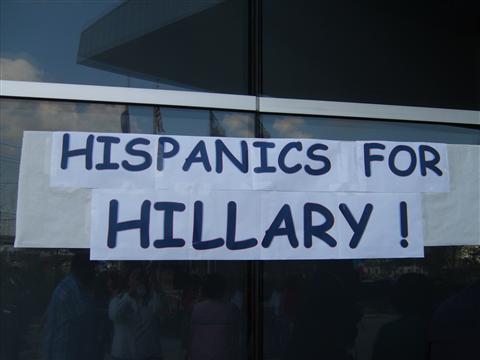 HISPANICS FOR
HILLARY !